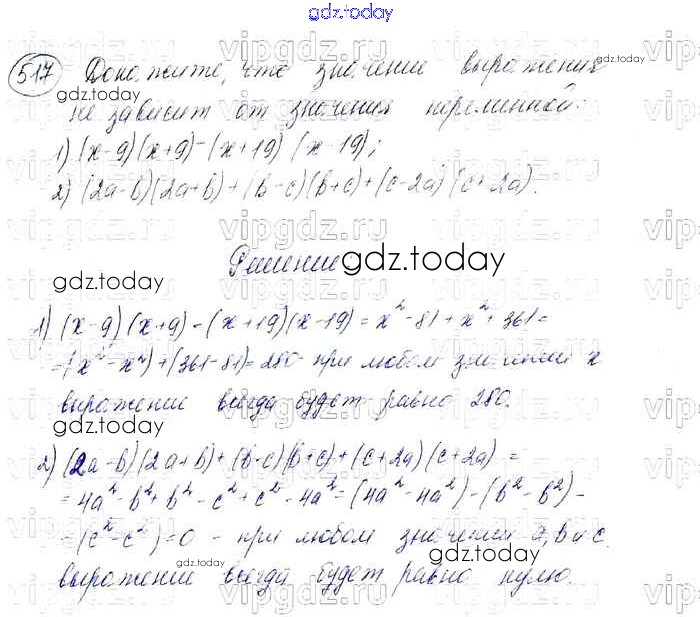 gdz.today
517 Докажите, что значение выражения
не зависит от значения переменной:
1) (x-9)(x+9)-(x+19)(x-19);
2) (2a-b)(2a+b)+(b-c)(b+c)+(c-2a)(c+2a).
Решение
1) (x-9)(x+9)-(x+19)(x-19)=x²-81+x²+361=
=(x²-x²)+(361-81)=280- при любом значении x
выражение всегда будет равно 280.
2) (2a-b)(2a+b)+(b-c)(b+c)+(c+2a)(c+2a)=
=4a²-b²+b²-c²+c²-4a²=(4a²-4a²)-(b²-b²)-
-(c²-c²)=0 - при любом значении a, b и c
выражение всегда будет равно нулю.